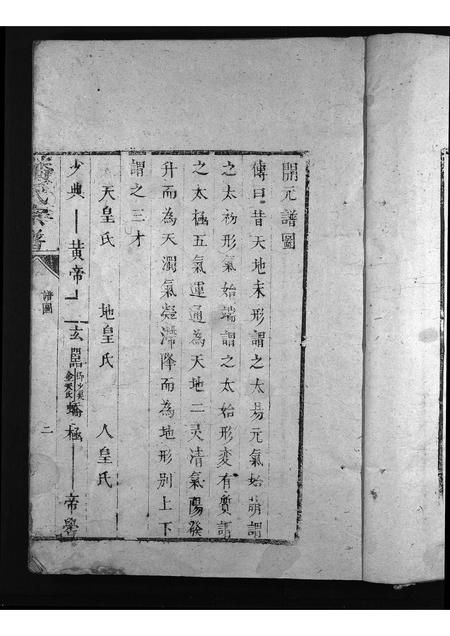 開元譜圖
傳曰昔天地未形謂之太易元氣始萌謂
之太初形氣始端謂之太始形變有質謂
之太極五氣運通為天地二灵清氣陽發
升而為天濁氣凝滯降而為地形别上下
謂之三才
天皇氏 地皇氏 人皇氏
少典 黄帝 玄囂 即少昊金天氏 蟜極 帝嚳
譜圖 二